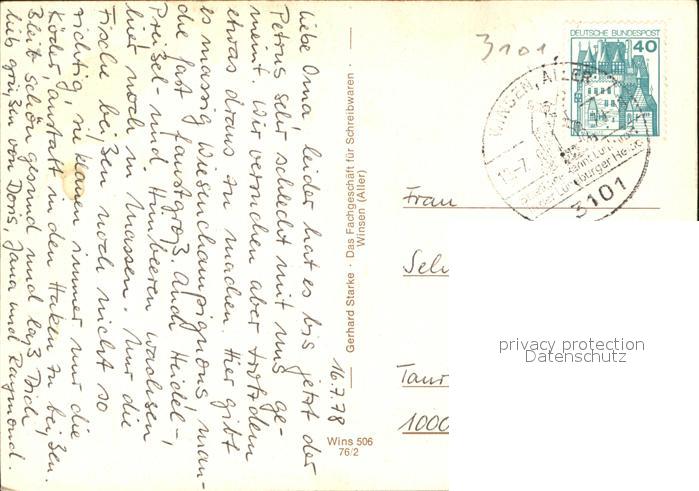 Liebe Oma, leider hat es bis jetzt der
Petrus sehr schlecht mit uns ge-
meint. Wir versuchen aber trotzdem
etwas draus zu machen. Hier gibt
es massig Wiesenchampignons, man-
che fast faustgroß. Auch Heidel-,
Preißel- und Himbeeren wachsen
hier noch in Massen. Nur die
Fische beißen noch nicht so
richtig, sie kamen immer nur die
Köder, anstatt in den Haken zu beißen.
Bleib schön gesund und laß Dich
lieb grüßen von Doris, Jana und Raymond
16.7.78
Gerhard Starke · Das Fachgeschäft für Schreibwaren ·
Winsen (Aller)
Wins 506
76/2
3101
DEUTSCHE BUNDESPOST
40
WINSEN, ALLER
Lüneburger Heide
3101
Frau
Taur
1000
privacy protection
Datenschutz